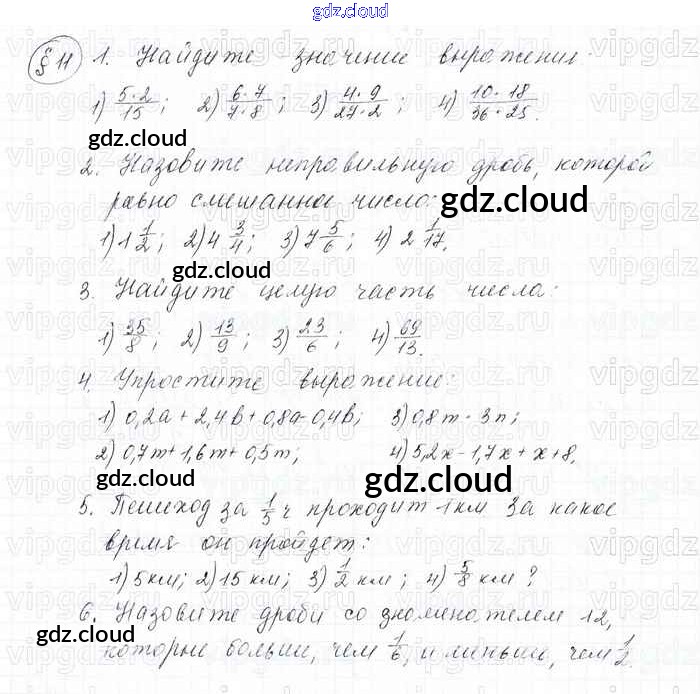 gdz.cloud
§ 11 1. Найдите значение выражения:
1) 5·2/15; 2) 6·7/7·8; 3) 4·9/27·2; 4) 10·18/36·25.
gdz.cloud
2. Назовите неправильную дробь, которой
равно смешанное число:
gdz.cloud
1) 1 1/2; 2) 4 3/4; 3) 7 5/6; 4) 2 1/17.
gdz.cloud
3. Найдите целую часть числа:
1) 35/8; 2) 13/9; 3) 23/6; 4) 69/13.
4. Упростите выражение:
1) 0,2a + 2,4b + 0,8a - 0,4b; 3) 0,8m · 3n;
2) 0,7m + 1,6m + 0,5m; 4) 5,2x - 1,7x + x + 8.
gdz.cloud gdz.cloud
5. Пешеход за 1/5 ч проходит 1 км. За какое
время он пройдет:
1) 5 км; 2) 15 км; 3) 1/2 км; 4) 5/8 км?
6. Назовите дроби со знаменателем 12,
gdz.cloud
которые больше, чем 1/6, и меньше, чем 1/2.